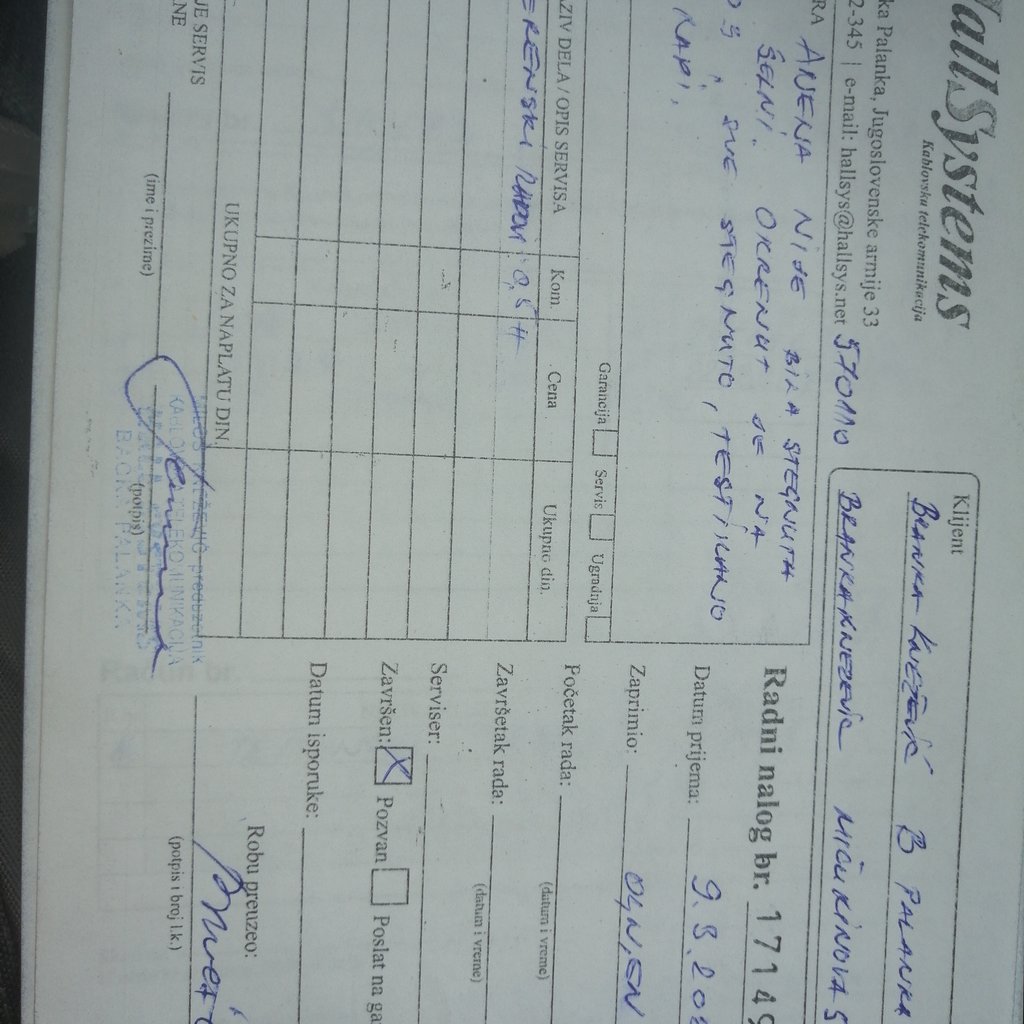 HallSystems
Kablovska telekomunikacija
ka Palanka, Jugoslovenske armije 33
2-345 | e-mail: hallsys@hallsys.net 570110
Klijent
BRANKA KNEŽEVIĆ B PALANKA
BRANKA KNEZEVIC MIČURINOVA 5
RA ANENA NIJE BILA STEGNUTA
ŠELNI. OKRENUT JE NA
OŠ I SVE STEGNUTO, TESTIRANO
RADI.
Garancija Servis Ugradnja
AZIV DELA / OPIS SERVISA Kom. Cena Ukupno din.
ERENSKI RADOVI 0,5 H
UKUPNO ZA NAPLATU DIN.
Radni nalog br. 17149
Datum prijema: 9.3.20
Zaprimio:
Početak rada:
(datum i vreme)
Završetak rada:
(datum i vreme)
Serviser:
Završen: X Pozvan Poslat na ga
Datum isporuke:
JE SERVIS
NE
(ime i prezime)
(potpis)
preduzetnik
BAČKA PALANKA
Robu preuzeo:
(potpis i broj l.k.)